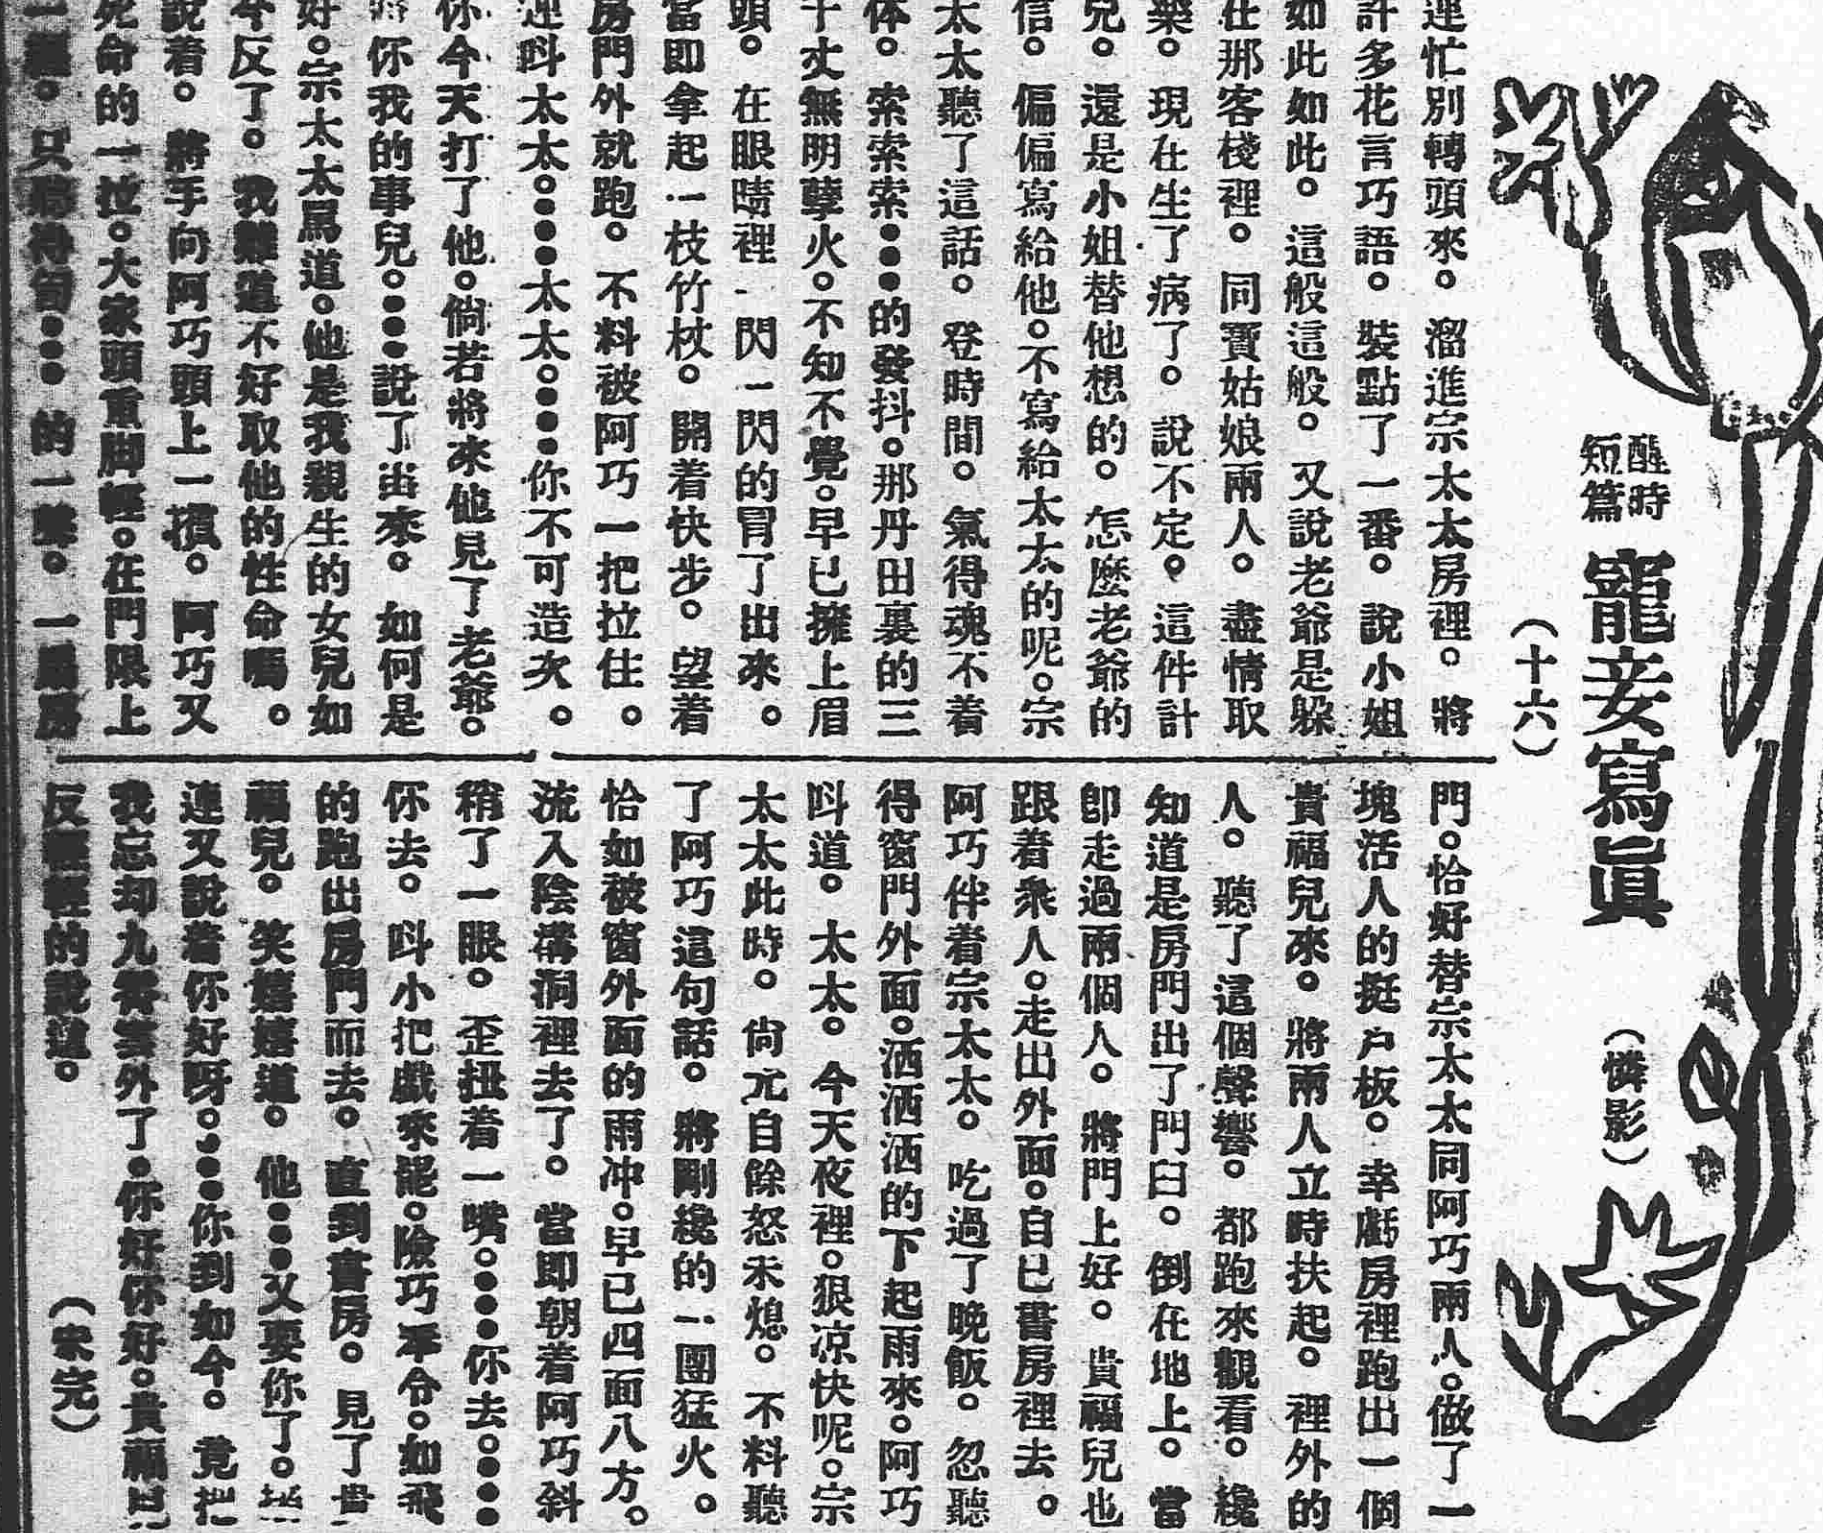 醒時
短篇
寵妾寫眞
（憐影）
（十六）
連忙別轉頭來。溜進宗太太房裡。將
許多花言巧語。裝點了一番。說小姐
如此如此。這般這般。又說老爺是躱
在那客棧裡。同寶姑娘兩人。盡情取
樂。現在生了病了。說不定。這件計
兒。還是小姐替他想的。怎麼老爺的
信。偏偏寫給他。不寫給太太的呢。宗
太太聽了這話。登時間。氣得魂不着
体。索索索●●●的發抖。那丹田裏的三
千丈無明孽火。不知不覺。早已擁上眉
頭。在眼睛裡一閃一閃的冒了出來。
當即拿起一枝竹杖。開着快步。望着
房門外就跑。不料被阿巧一把拉住。
連呌太太。●●●太太。●●●你不可造次。
你今天打了他。倘若將來他見了老爺。
將你我的事兒。●●●說了出來。如何是
好。宗太太罵道。他是我親生的女兒如
今反了。我難道不好取他的性命嗎。
說着。將手向阿巧頭上一摸。阿巧又
死命的一拉。大家頭重脚輕。在門限上
一。只聽得訇●●●的一聲。一扇房
門。恰好替宗太太同阿巧兩人。做了一
塊活人的挺户板。幸虧房裡跑出一個
貴福兒來。將兩人立時扶起。裡外的
人。聽了這個聲響。都跑來觀看。纔
知道是房門出了門臼。倒在地上。當
卽走過兩個人。將門上好。貴福兒也
跟着衆人。走出外面。自已書房裡去。
阿巧伴着宗太太。吃過了晚飯。忽聽
得窗門外面。洒洒洒的下起雨來。阿巧
呌道。太太。今天夜裡。狠凉快呢。宗
太太此時。尙兀自餘怒未熄。不料聽
了阿巧這句話。將剛纔的一團猛火。
恰如被窗外面的雨冲。早已四面八方。
流入陰溝洞裡去了。當即朝着阿巧斜
稍了一眼。歪扭着一嘴。●●●你去。●●●
你去。呌小把戲來罷。險巧奉令。如飛
的跑出房門而去。直到書房。見了貴
福兒。笑嬉嬉道。他●●●又要你了。
連又說着你好呀。●●●你到如今。竟把
我忘却九霄雲外了。你好你好。貴福兒
反輕輕的說道。
（未完）